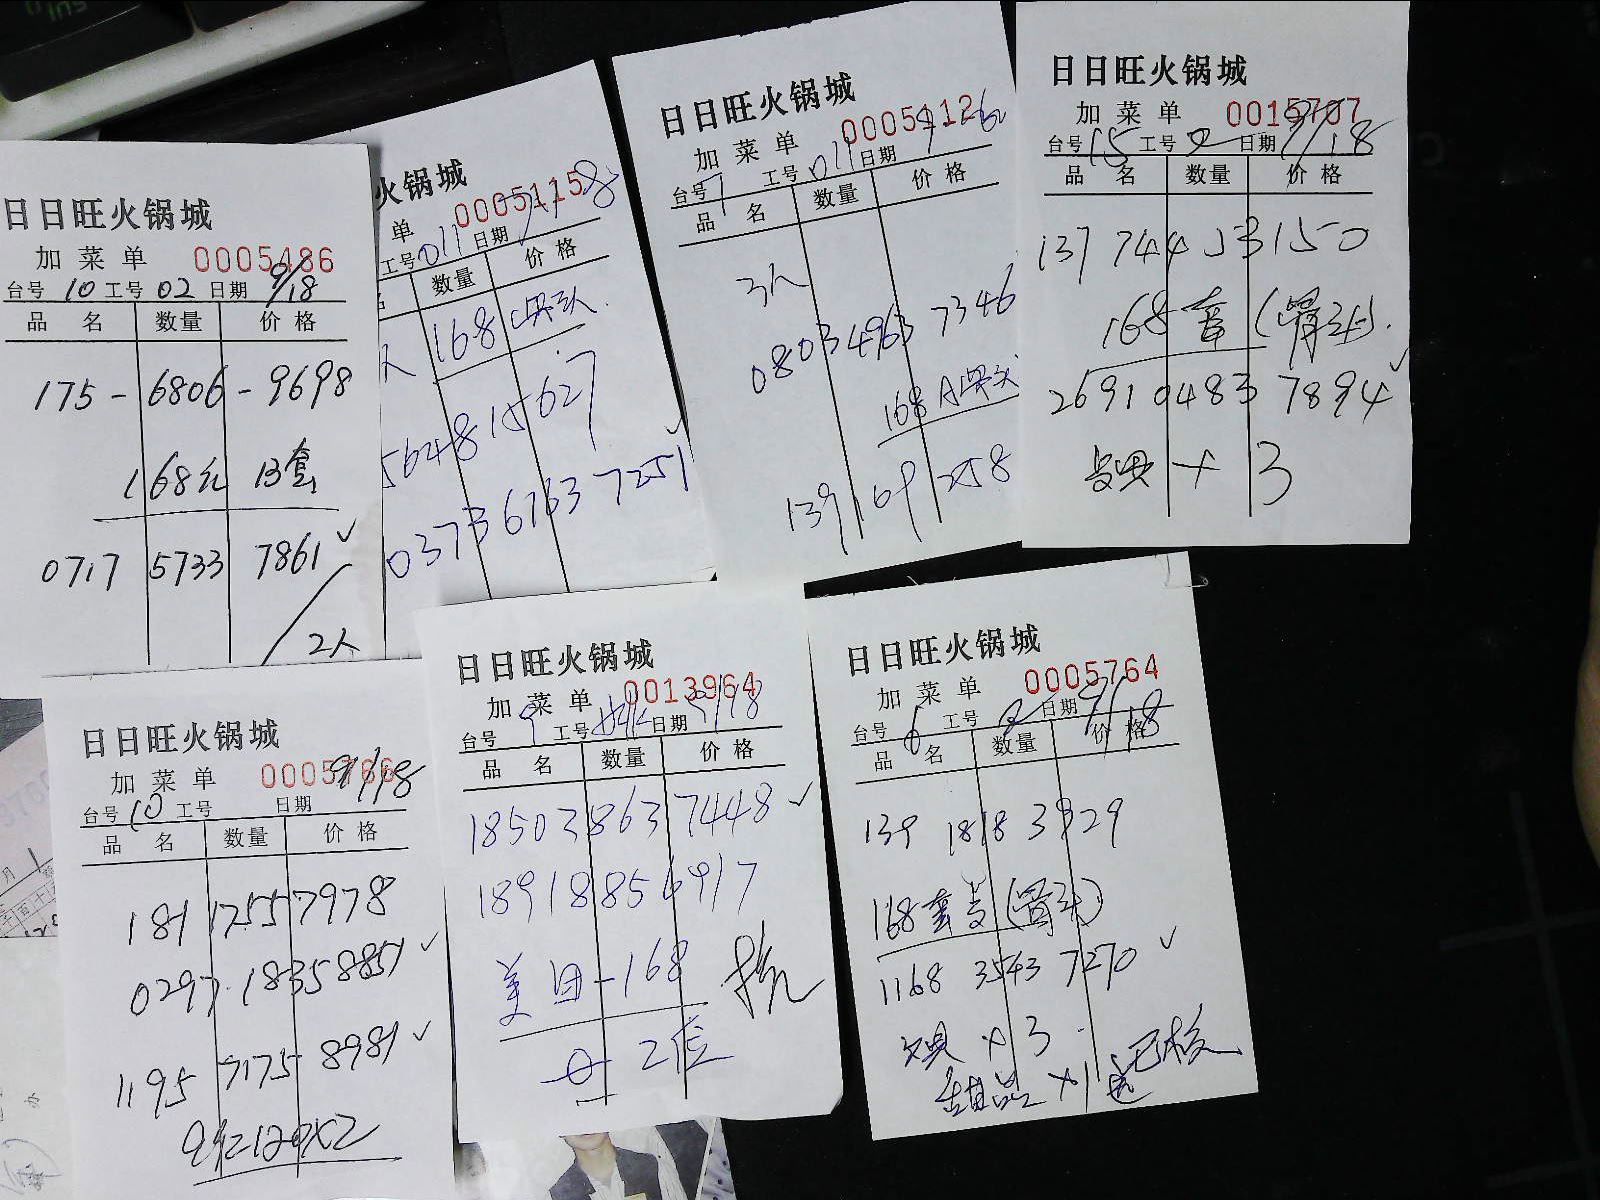 日日旺火锅城
加菜单 0005486
台号 10 工号 02 日期 9/18
品名 数量 价格
175-6806-9698
168元 B套
0717 5733 7861 ✓
2人
火锅城
单 0005115
工号 011 日期
数量 价格
168
5648 15627
0373 6763 7251 ✓
日日旺火锅城
加菜单 0005112
台号 7 工号 011 日期
品名 数量 价格
3人
0803 4963 7346
168 A
139 169 258
日日旺火锅城
加菜单 0015707
台号 15 工号 2 日期 9/18
品名 数量 价格
137 744 53150
168套 (骨头).
2691 0483 7894 ✓
× 3
日日旺火锅城
加菜单
台号 10 工号 日期 9/18
品名 数量 价格
181 1755 7978
0297 1835 8851 ✓
1195 7175 8981 ✓
日日旺火锅城
加菜单 0013964
台号 9 工号 日期 9/18
品名 数量 价格
18503863 7448 ✓
18918856917
美团-168
2位
日日旺火锅城
加菜单 0005764
台号 6 工号 2 日期 9/18
品名 数量 价格
139 1818 3929
168套 (骨头)
1168 3543 7270 ✓
× 3
甜品 ×1 已核